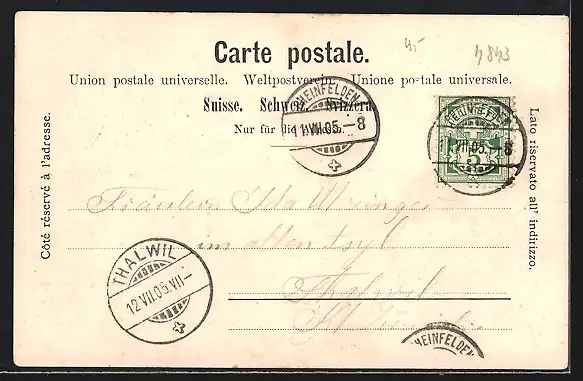 45 4843
Carte postale.
Union postale universelle. Weltpostverein. Unione postale universale.
Suisse. Schweiz. Svizzera.
Nur für die Adresse.
Côté réservé à l'adresse.
Lato riservato all' indirizzo.
RHEINFELDEN
11.VII.05.-8
RHEINFELDEN
11.VII.05.-8
5
Fräulein Ida
im alten
Thalwil
Kt. Zürich
THALWIL
12.VII.05.VII-
RHEINFELDEN